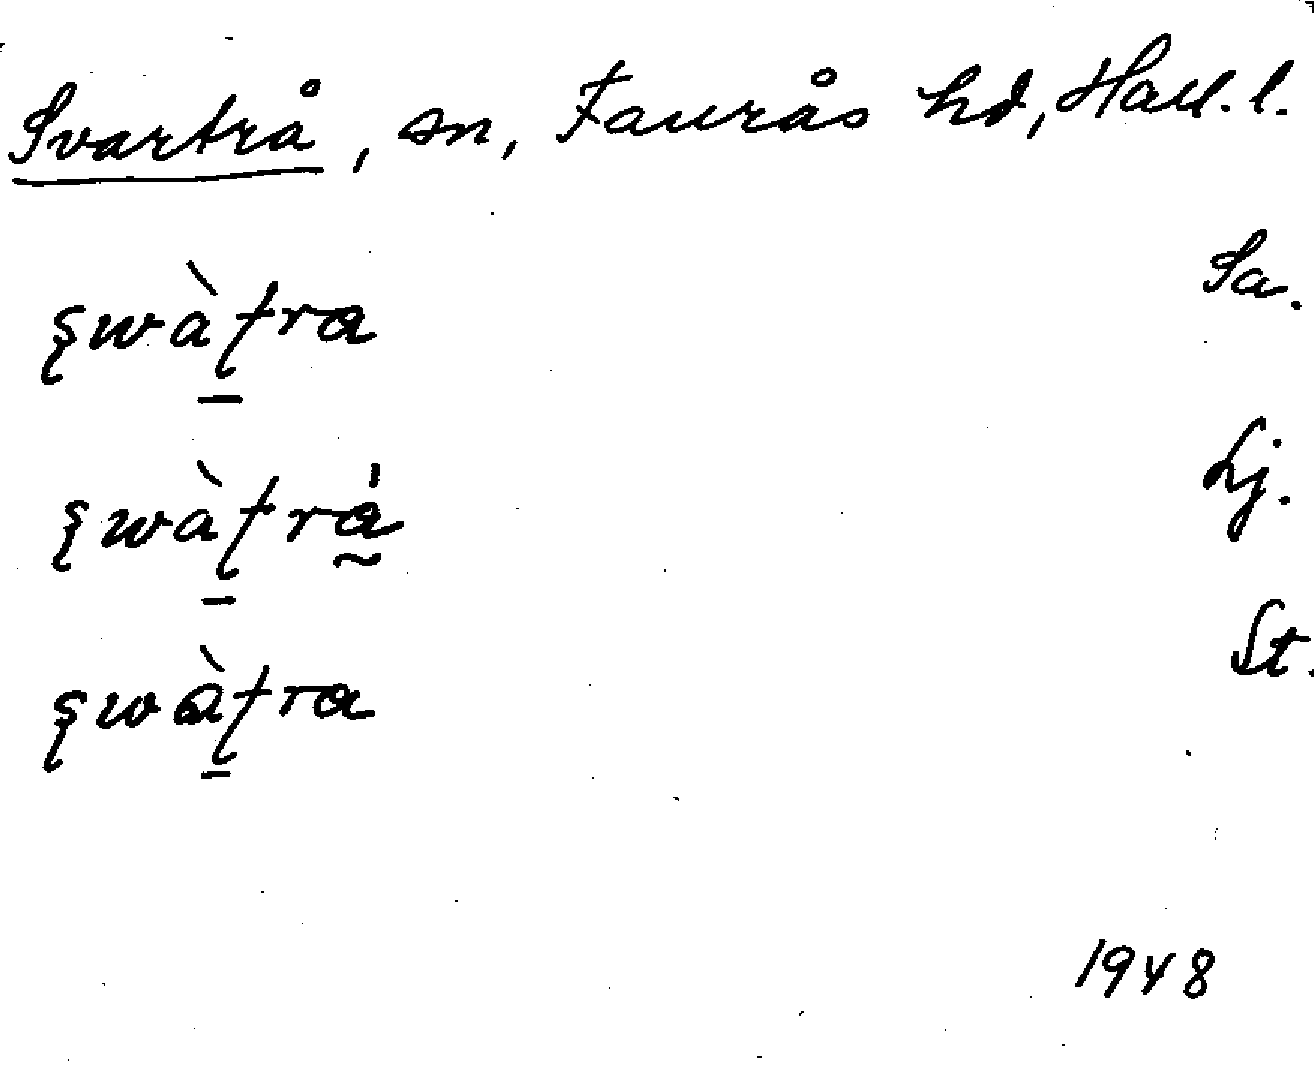 Svartrå, sn, Faurås hd, Hall. l.
ʂwàʈra Sa.
ʂwàʈrá Lj.
ʂwàʈra St.
1948